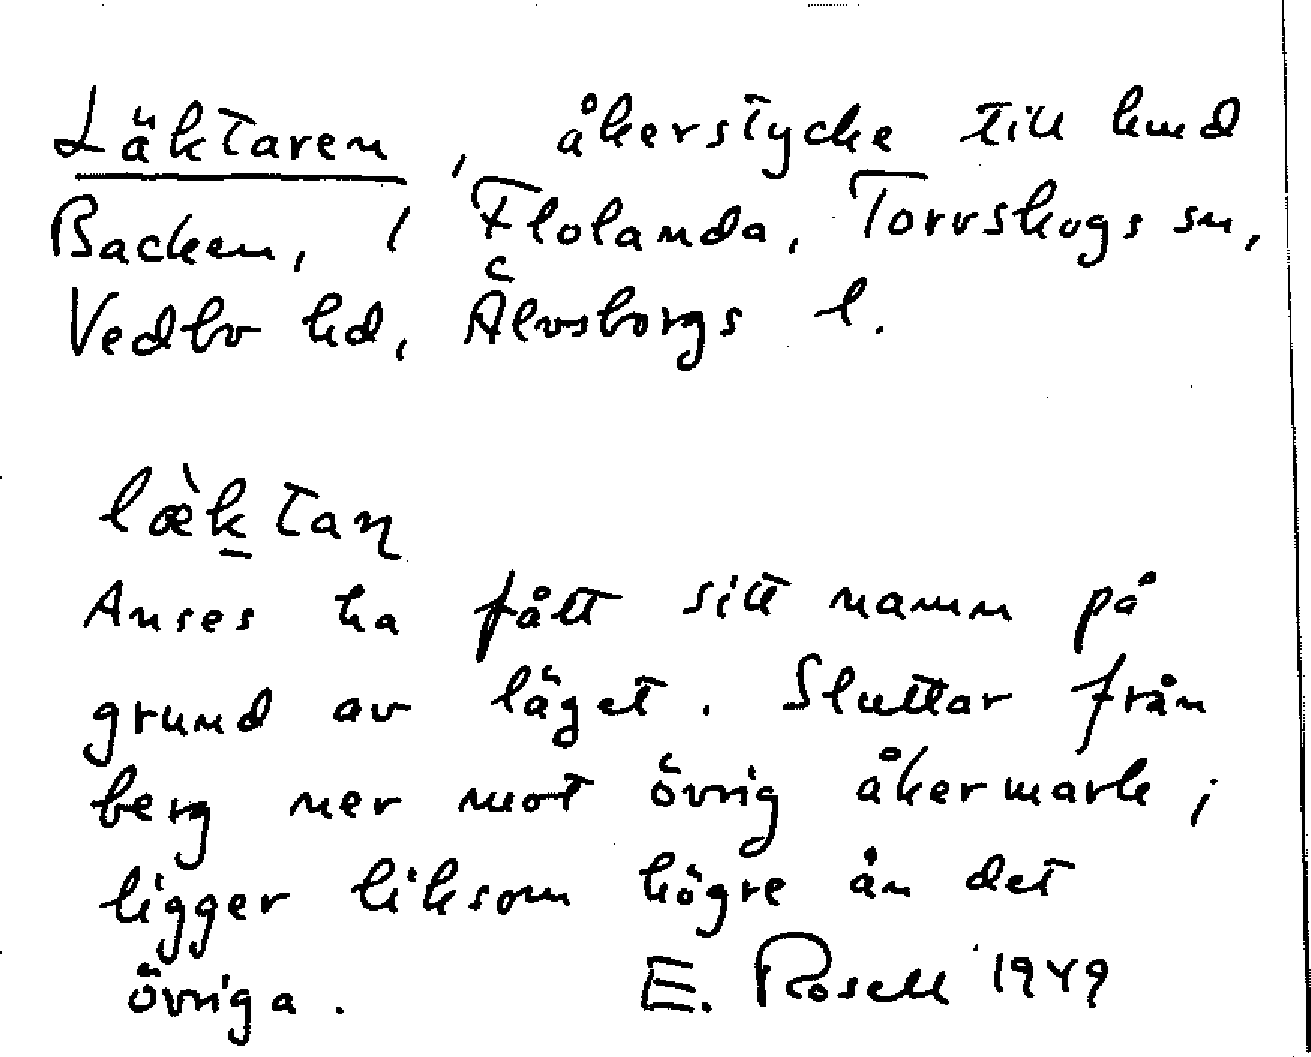 Läktaren, åkerstycke till hmd
Backen, i Flolanda, Torrskogs sn,
Vedbo hd, Älvsborgs l.
læ̀k̠taɳ
Anses ha fått sitt namn på
grund av läget. Sluttar från
berg ner mot övrig åkermark;
ligger liksom högre än det
övriga. E. Rosell 1949